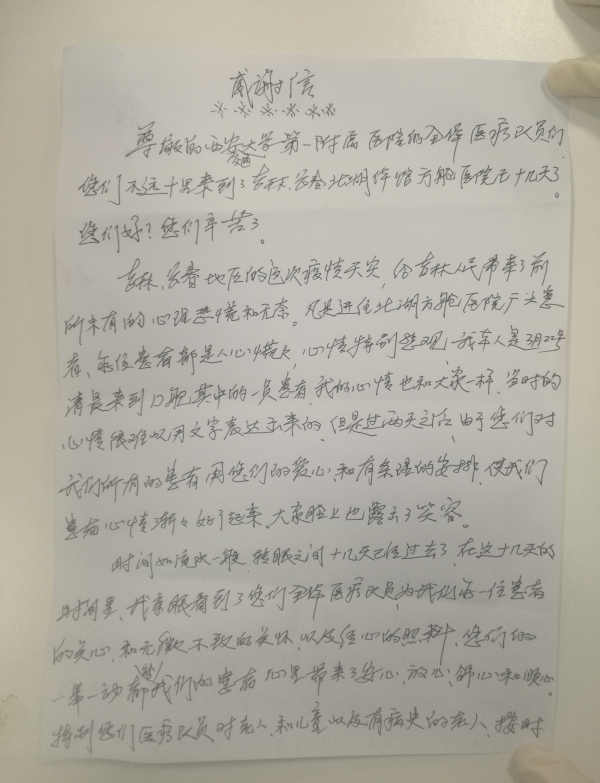 感谢信
※※※※※※
尊敬的西安交通大学第一附属医院的全体医疗队员们,
您们不远千里来到了吉林.长春北湖体馆方舱医院已十几天了
您们好?您们辛苦了。
吉林.长春地区的这次疫情天灾,给吉林人民带来了前
所未有的心理恐慌和无奈。凡是进住北湖方舱医院广大患
者、每位患者都是人心慌慌,心情特别悲观,我本人是3月22号
清晨来到口舱其中的一员患者我的心情也和大家一样,当时的
心情很难以用文字表达出来的,但是过两天之后,由于您们对
我们所有的患者用您们的爱心,和有条理的安排,使我们
患者心情渐々好了起来。大家脸上也露出了笑容。
时间如流水一般,转眼之间十几天已经过去了,在这十几天的
时间里,我亲眼看到了您们全体医疗队员,为我们每一位患者
的关心,和无微不致的关怀,以及任心的照料,您们的
一举一动都给我们的患者心里带来了安心,放心,舒心和顺心。
特别您们医疗队员对老人,和儿童以及有病史的老人、按时